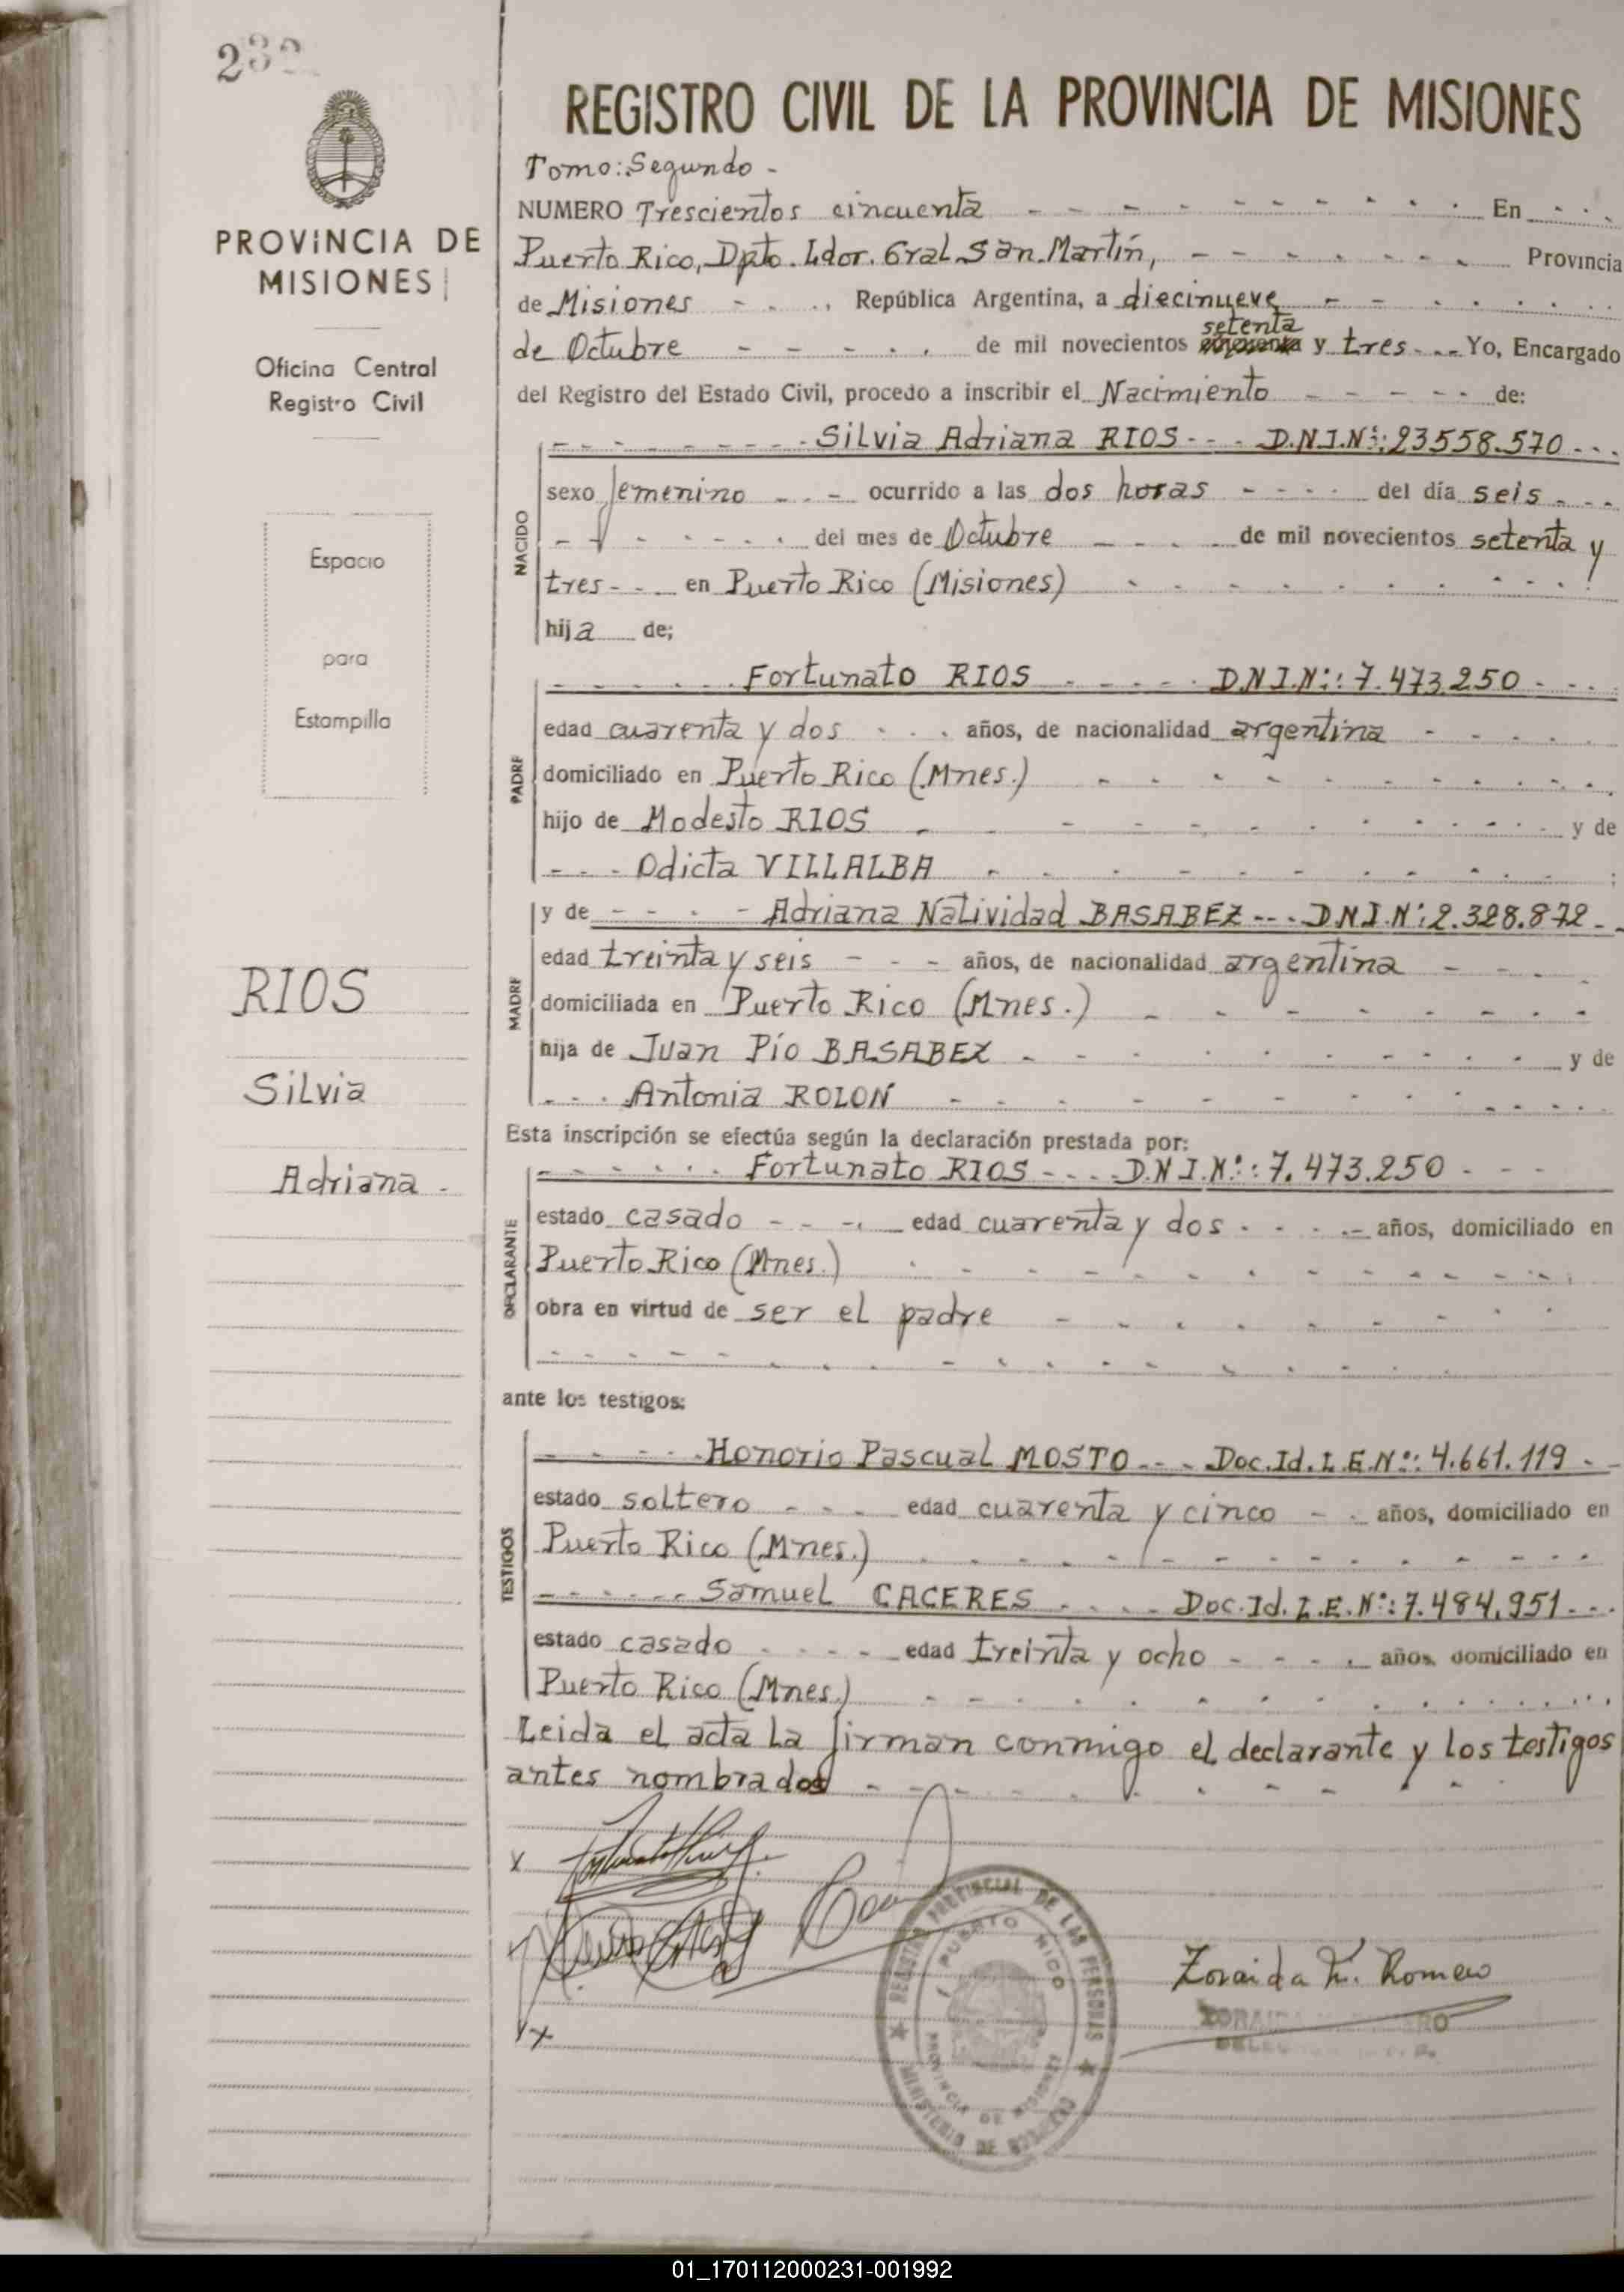 232
PROVINCIA DE
MISIONES
Oficina Central
Registro Civil
Espacio
para
Estampilla
RIOS
Silvia
Adriana -
REGISTRO CIVIL DE LA PROVINCIA DE MISIONES
Tomo: Segundo -
NUMERO Trescientos cincuenta - - - En - - -
Puerto Rico, Dpto. Ldor. Gral. San Martín, - - - Provincia
de Misiones - - - , República Argentina, a diecinueve - - -
setenta
de Octubre - - - de mil novecientos cincuenta y tres - - - Yo, Encargado
del Registro del Estado Civil, procedo a inscribir el Nacimiento - - - de:
NACIDO
- - - Silvia Adriana RIOS - - - D.N.I.Nº: 23558.570 - - -
sexo femenino - - - ocurrido a las dos horas - - - del día seis - - -
- - - del mes de Octubre - - - de mil novecientos setenta y
tres - - - en Puerto Rico (Misiones) - - -
hija de;
PADRE
- - - Fortunato RIOS - - - D.N.I.Nº: 7.473.250 - - -
edad cuarenta y dos - - - años, de nacionalidad argentina - - -
domiciliado en Puerto Rico (Mnes.) - - -
hijo de Modesto RIOS - - - y de
- - - Odicta VILLALBA - - - ;
MADRE
y de - - - Adriana Natividad BASABEZ - - - D.N.I.Nº: 2.328.872 - -
edad treinta y seis - - - años, de nacionalidad argentina - - -
domiciliada en Puerto Rico (Mnes.) - - -
hija de Juan Pío BASABEZ - - - y de
- - - Antonia ROLON - - -
Esta inscripción se efectúa según la declaración prestada por:
DECLARANTE
- - - Fortunato RIOS - - - D.N.I.Nº: 7.473.250 - - -
estado casado - - - edad cuarenta y dos - - - años, domiciliado en
Puerto Rico (Mnes.) - - -
obra en virtud de ser el padre - - -
- - -
ante los testigos:
TESTIGOS
- - - Honorio Pascual MOSTO - - - Doc.Id.L.E.Nº: 4.661.119 - -
estado soltero - - - edad cuarenta y cinco - - años, domiciliado en
Puerto Rico (Mnes.) - - -
- - - Samuel CACERES - - - Doc.Id.L.E.Nº: 7.484.951 - - -
estado casado - - - edad treinta y ocho - - - años, domiciliado en
Puerto Rico (Mnes.) - - -
Leida el acta la firman conmigo el declarante y los testigos
antes nombrados - - -
x
x
REGISTRO PROVINCIAL DE LAS PERSONAS
PUERTO RICO
PROVINCIA DE MISIONES
MINISTERIO DE GOBIERNO
Zoraida M. Romero
ZORAIDA ROMERO
01_170112000231-001992